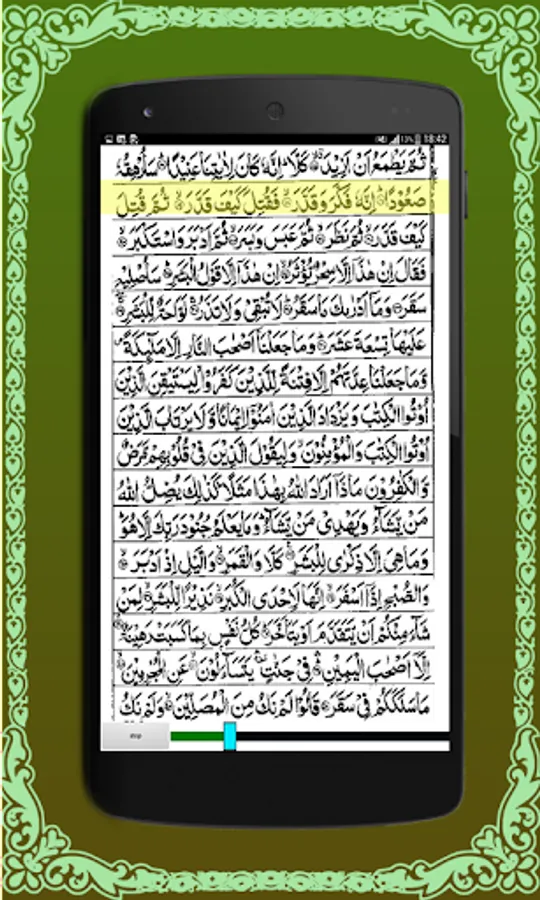 13% 18:42
ثُمَّ يَطْمَعُ اَنْ اَزِيْدَ ۙ كَلَّا ؕ اِنَّهٗ كَانَ لِاٰيٰتِنَا عَنِيْدًا ؕ سَاُرْهِقُهٗ
صَعُوْدًا ؕ اِنَّهٗ فَكَّرَ وَقَدَّرَ ۙ فَقُتِلَ كَيْفَ قَدَّرَ ۙ ثُمَّ قُتِلَ
كَيْفَ قَدَّرَ ۙ ثُمَّ نَظَرَ ۙ ثُمَّ عَبَسَ وَبَسَرَ ۙ ثُمَّ اَدْبَرَ وَاسْتَكْبَرَ ۙ
فَقَالَ اِنْ هٰذَاۤ اِلَّا سِحْرٌ يُّؤْثَرُ ۙ اِنْ هٰذَاۤ اِلَّا قَوْلُ الْبَشَرِ ؕ سَاُصْلِيْهِ
سَقَرَ ۞ وَمَاۤ اَدْرٰىكَ مَا سَقَرُ ؕ لَا تُبْقِيْ وَلَا تَذَرُ ۚ لَوَّاحَةٌ لِّلْبَشَرِ ۚ
عَلَيْهَا تِسْعَةَ عَشَرَ ؕ وَمَا جَعَلْنَاۤ اَصْحٰبَ النَّارِ اِلَّا مَلٰٓئِكَةً ۪
وَّمَا جَعَلْنَا عِدَّتَهُمْ اِلَّا فِتْنَةً لِّلَّذِيْنَ كَفَرُوْا ۙ لِيَسْتَيْقِنَ الَّذِيْنَ
اُوْتُوا الْكِتٰبَ وَيَزْدَادَ الَّذِيْنَ اٰمَنُوْۤا اِيْمَانًا وَّلَا يَرْتَابَ الَّذِيْنَ
اُوْتُوا الْكِتٰبَ وَالْمُؤْمِنُوْنَ ۙ وَلِيَقُوْلَ الَّذِيْنَ فِيْ قُلُوْبِهِمْ مَّرَضٌ
وَّالْكٰفِرُوْنَ مَاذَاۤ اَرَادَ اللّٰهُ بِهٰذَا مَثَلًا ؕ كَذٰلِكَ يُضِلُّ اللّٰهُ
مَنْ يَّشَآءُ وَيَهْدِيْ مَنْ يَّشَآءُ ؕ وَمَا يَعْلَمُ جُنُوْدَ رَبِّكَ اِلَّا هُوَ ؕ
وَمَا هِيَ اِلَّا ذِكْرٰى لِلْبَشَرِ ۧ كَلَّا وَالْقَمَرِ ۙ وَالَّيْلِ اِذْ اَدْبَرَ ۙ
وَالصُّبْحِ اِذَاۤ اَسْفَرَ ۙ اِنَّهَا لَاِحْدَى الْكُبَرِ ۙ نَذِيْرًا لِّلْبَشَرِ ۙ لِمَنْ
شَآءَ مِنْكُمْ اَنْ يَّتَقَدَّمَ اَوْ يَتَاَخَّرَ ؕ كُلُّ نَفْسٍۭ بِمَا كَسَبَتْ رَهِيْنَةٌ ۙ
اِلَّاۤ اَصْحٰبَ الْيَمِيْنِ ؕۛ فِيْ جَنّٰتٍ ۛ۫ يَتَسَآءَلُوْنَ ۙ عَنِ الْمُجْرِمِيْنَ ۙ
مَا سَلَكَكُمْ فِيْ سَقَرَ ۞ قَالُوْا لَمْ نَكُ مِنَ الْمُصَلِّيْنَ ۙ وَلَمْ نَكُ
stop